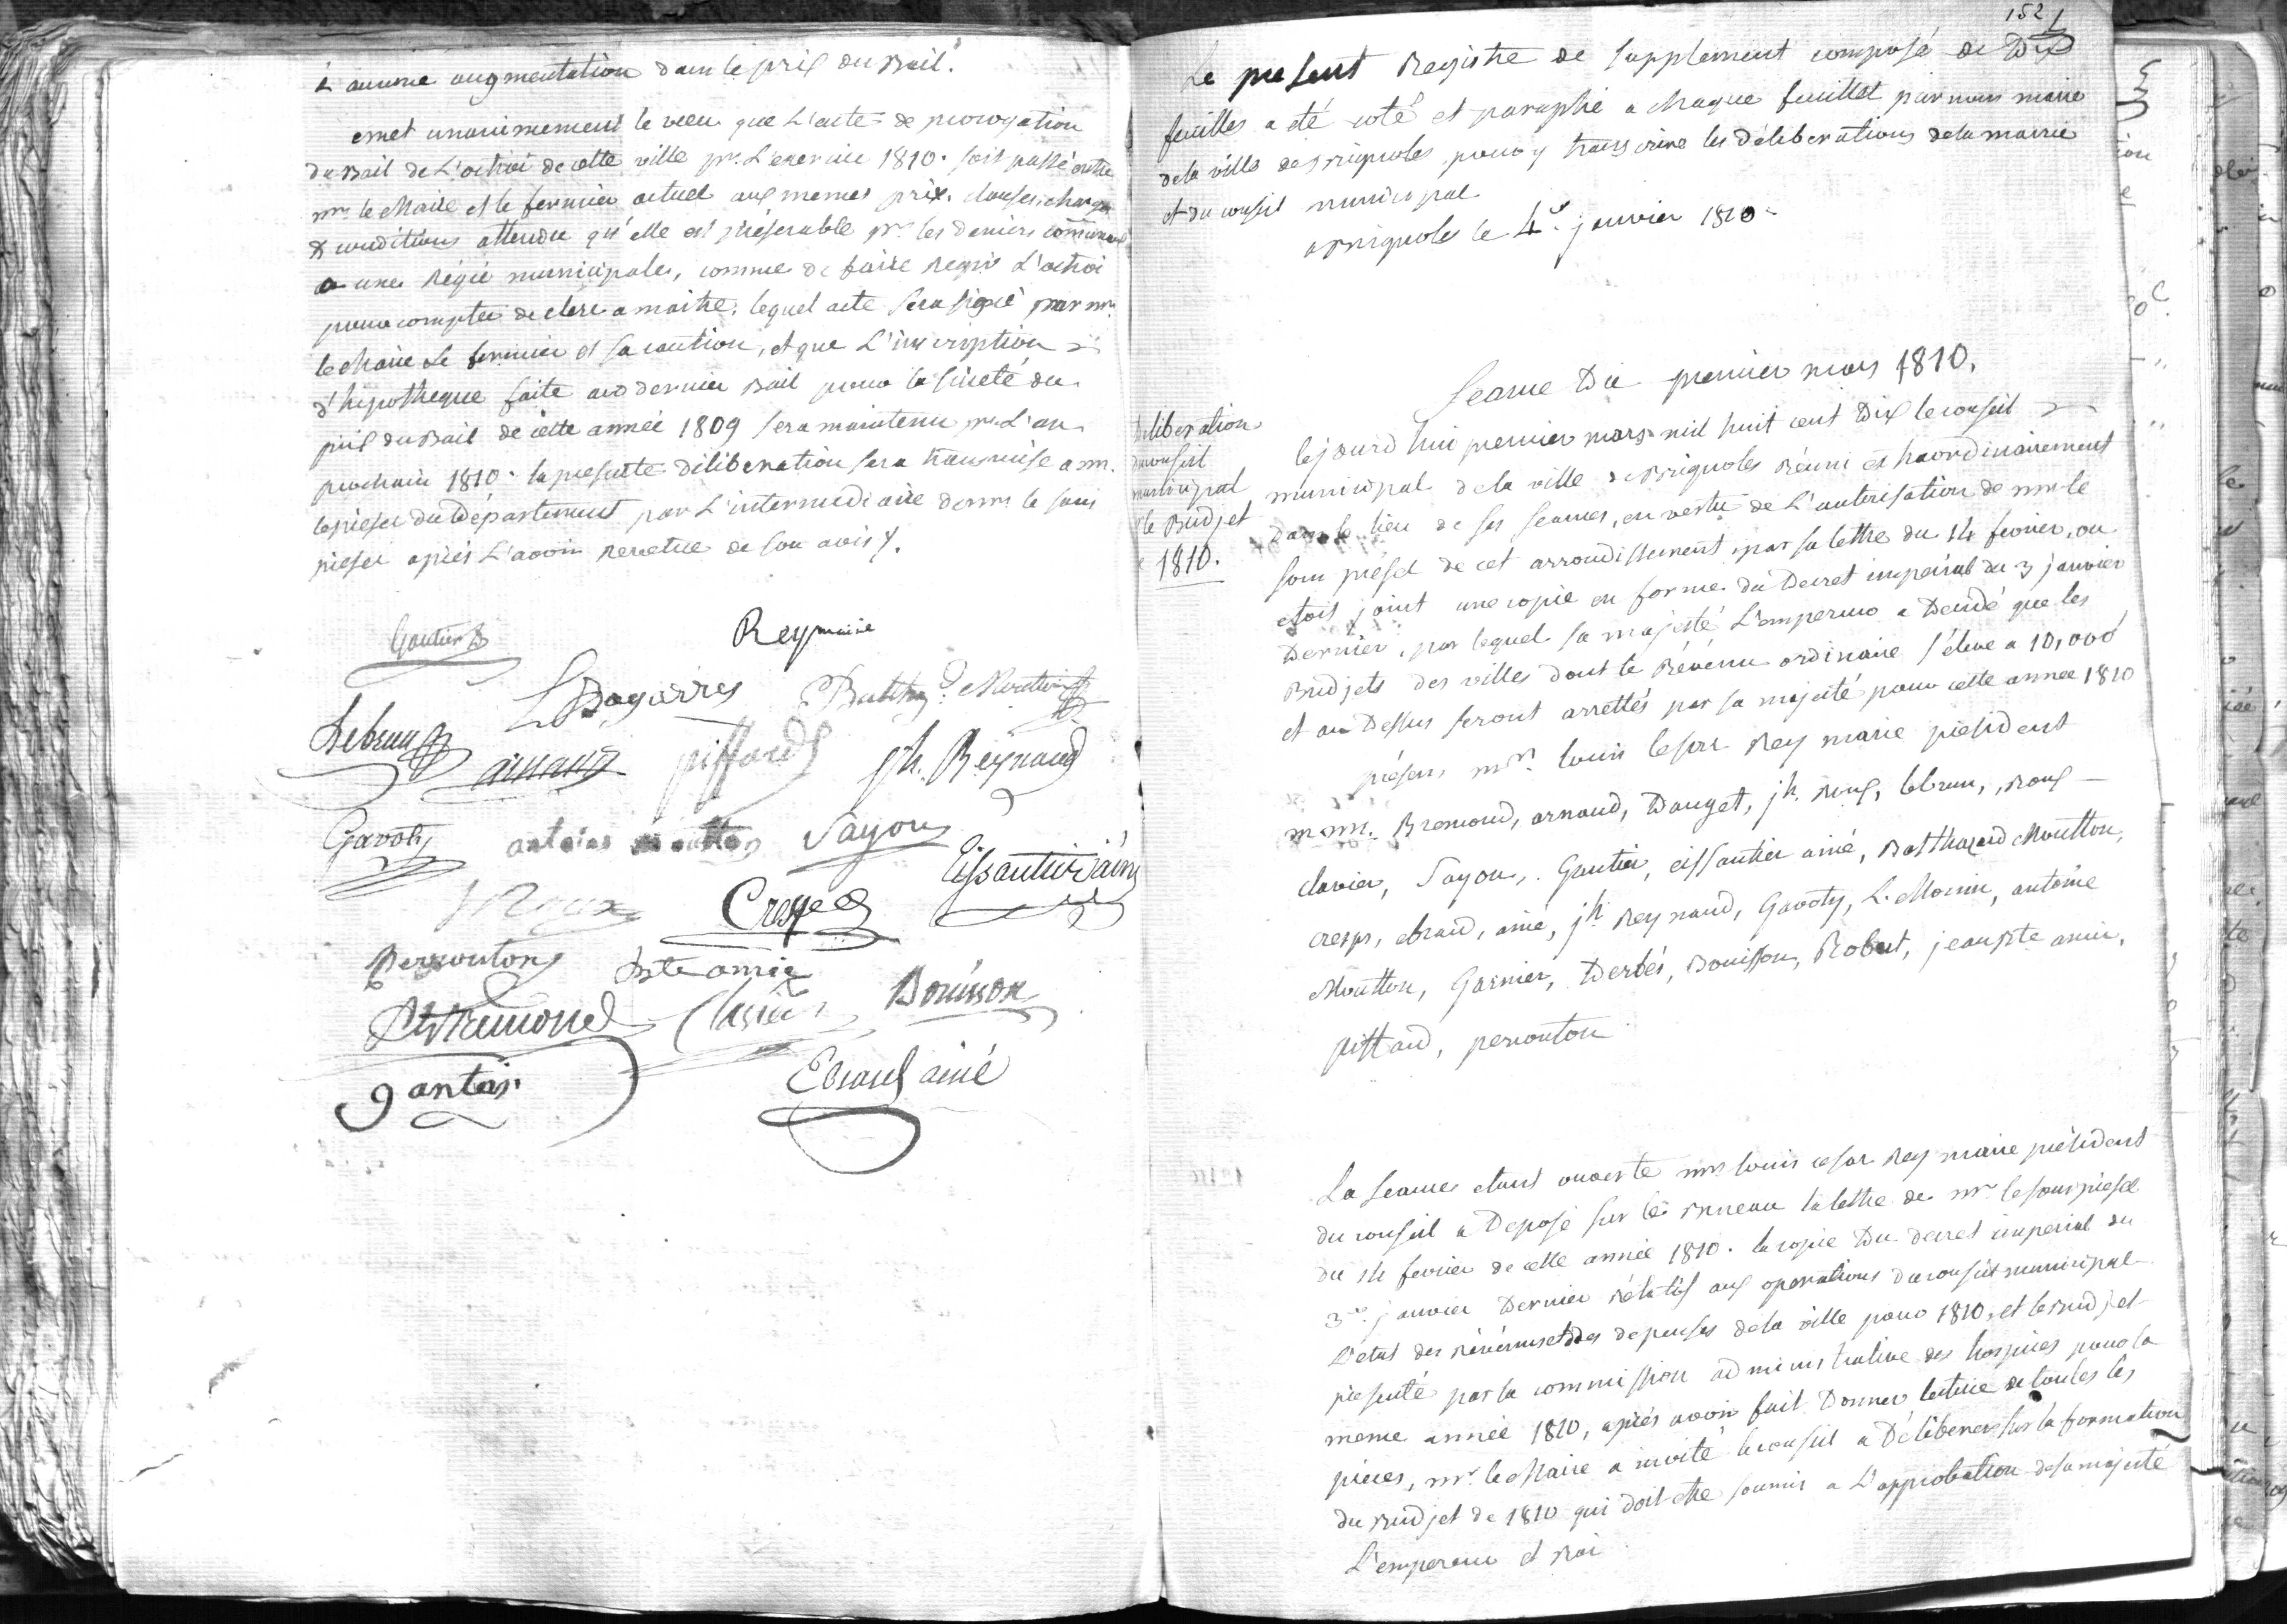 à aucune augmentation dans le prix du Bail.
emet unanimement le vœu que L'acte de prorogation
du Bail de L'octroi de cette ville pr. L'exercice 1810. soit passé entre
mr. le Maire et le fermier actuel aux memes prix, clauses, charges
& conditions attendu qu'elle est préférable pr. les deniers communaux
a une Régie municipale, comme de faire Regir L'octroi
pour compter de clerc a maitre, lequel acte sera signé par mr.
le Maire Le fermier et sa caution, et que L'inscription
d'hipotheque faite au dernier Bail pour la sureté du
prix du Bail de cette année 1809 sera maintenu pr. L'an
prochain 1810. la presente déliberation sera transmise a mr.
le prefet du Département par L'intermediaire de mr. le sous
prefet après L'avoir revetue de son avis
Gautier
Rey maire
L Dagarres
Balthd. Moutton
Lebrun
arnaud
piffard
jh. Reynaud
Gavoty
antoine moutton
Sayou
Roux
Cresp
Eissautier ainé
Perrouton
Bte amic
Bremond
Clavier
Bouisson
gantier
Ebrard ainé
152
Le present Registre de supplement composé de Dix
feuilles a été coté et paraphé a chaque feuillet par nous maire
de la ville de Brignoles pour y transcrire les déliberations de la mairie
et du conseil municipal
a Brignoles le 4e. janvier 1810
Seance Du premier mars 1810.
Deliberation
du conseil
municipal
le Budjet
1810.
Cejourd'hui premier mars mil huit cent Dix le conseil
municipal de la ville de Brignoles Réuni extraordinairement
dans le lieu de ses seances, en vertu de L'autorisation de mr le
sous prefet de cet arrondissement par sa lettre du 14 fevrier, ou
etoit joint une copie en forme du Decret imperial du 3 janvier
Dernier, par lequel sa majesté L'empereur a Decidé que les
Budjets des villes dont le Révenu ordinaire s'éleve a 10,000f
et au Dessus seront arrettés par sa majesté pour cette annee 1810
présens mr. louis Cesar Rey maire président
mrs. Bremond, arnaud, Dauget, jh. Roux, lebrun, Roux
clavier, Sayou, Gautier, eissautier ainé, Balthazard Moutton,
cresps, ebrard, ainé, jh. Reynaud, Gavoty, L. Monin, antoine
Moutton, Garnier, Derbés, Bouisson, Robert, jean Bte amic,
piffard, perrouton
La seance etant ouverte mr louis cesar Rey maire président
du conseil a Deposé sur le Bureau la lettre de mr. le sous prefet
du 14 fevrier de cette année 1810. la copie Du decret imperial du
3e. janvier Dernier rélatif aux operations du conseil municipal
L'etat des Révenus et des depenses de la ville pour 1810, et le Budjet
presenté par la commission administrative des hospices pour la
meme année 1810, après avoir fait Donner lecture de toutes les
pieces, mr. le Maire a invité le conseil a Déliberer sur la formation
du Budjet de 1810 qui doit etre soumis a L'approbation de sa majesté
L'empereur et Roi